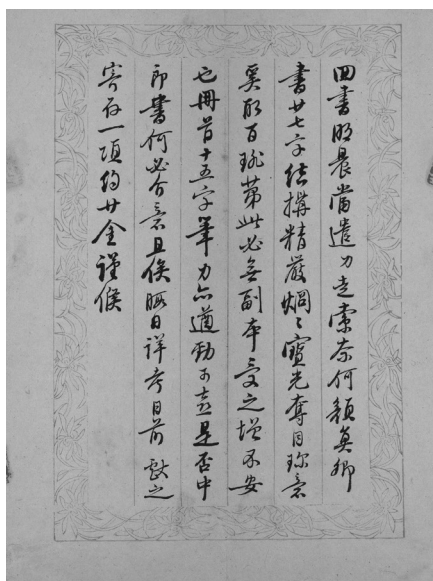 四書明晨當遣力走索奈何顏真卿
書廿七字結搆精嚴烱〻寶光奪目珎意
奚百琲第此必無副本受之增不安
也冊首十五字筆力亦遒勁可喜是否中
郎書何必有意且俟暇日詳考目前獻之
寄存一項約廿金謹候